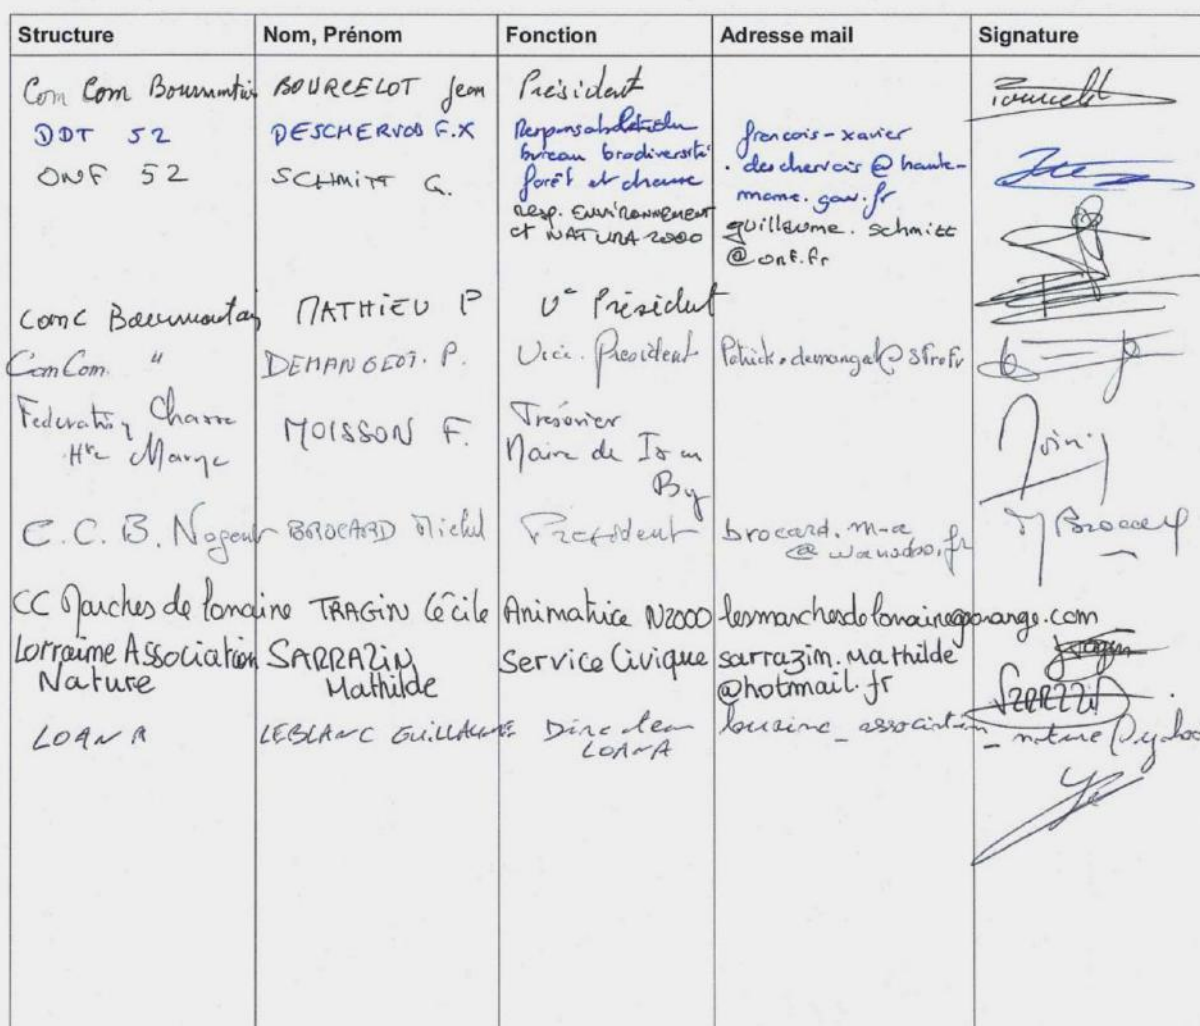 Structure Nom, Prénom Fonction Adresse mail Signature
Com Com BOURCELOT Jean Président
DDT 52 F.X Responsable du
bureau biodiversité
forêt et chasse
francois-xavier
.deschervois@haute-
marne.gouv.fr
ONF 52 SCHMITT G. Resp. ENVIRONNEMENT
et NATURA 2000
guillaume.schmitt
@onf.fr
MATHIEU P Vce Président
ComCom. " DEMANGEOT. P. Vice. President
Federation Chasse
Hte Marne
MOISSON F. Trésorier
Maire de
C. C. B. Nogent BROCARD Michel President brocard.m-a
@wanadoo.fr
CC Marches de Lorraine TRAGIN Cécile Animatrice N2000 lesmarchesdelorraine@orange.com
Tragin
Lorraine Association
Nature
SARRAZIN
Mathilde
Service Civique sarrazin.mathilde
@hotmail.fr
SARRAZIN
LOANA LEBLANC GUILLAUME Directeur
LOANA
lorraine_association_nature@yahoo